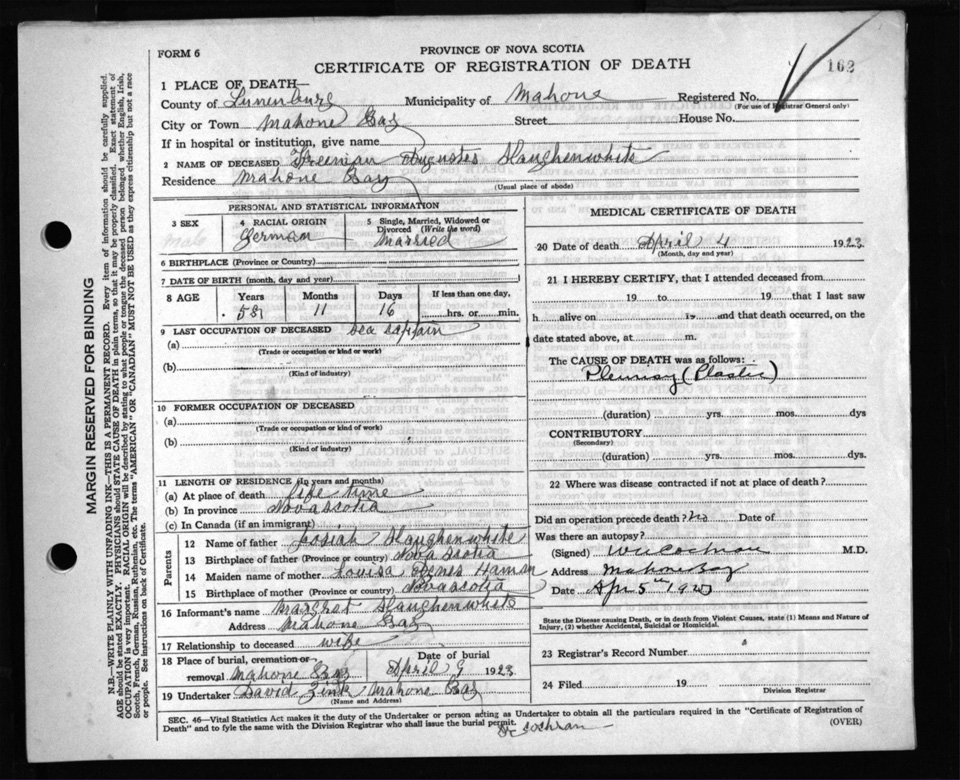 FORM 6
PROVINCE OF NOVA SCOTIA
CERTIFICATE OF REGISTRATION OF DEATH
162
1 PLACE OF DEATH—
County of Lunenburg Municipality of Mahone Registered No.
(For use of Registrar General only)
City or Town Mahone Bay Street House No.
If in hospital or institution, give name
2 NAME OF DECEASED Freeman Augustes Slaughenwhite
Residence Mahone Bay
(Usual place of abode)
PERSONAL AND STATISTICAL INFORMATION
3 SEX Male
4 RACIAL ORIGIN German
5 Single, Married, Widowed or Divorced (Write the word) Married
6 BIRTHPLACE (Province or Country)
7 DATE OF BIRTH (month, day and year)
8 AGE Years Months Days If less than one day,
58 11 16 hrs. or min.
9 LAST OCCUPATION OF DECEASED sea captain
(a)
(Trade or occupation or kind or work)
(b)
(Kind of industry)
10 FORMER OCCUPATION OF DECEASED
(a)
(Trade or occupation or kind of work)
(b)
(Kind of industry)
11 LENGTH OF RESIDENCE (In years and months)
(a) At place of death life time
(b) In province Nova scotia
(c) In Canada (if an immigrant)
Parents
12 Name of father Josiah Slaughenwhite
13 Birthplace of father (Province or country) Nova Scotia
14 Maiden name of mother Louisa Haman
15 Birthplace of mother (Province or country) Nova scotia
16 Informant's name Slaughenwhite
Address Mahone Bay
17 Relationship to deceased wife
18 Place of burial, cremation or removal Mahone Bay Date of burial April 9 1923
19 Undertaker David Zink Mahone Bay
(Name and Address)
MEDICAL CERTIFICATE OF DEATH
20 Date of death April 4 1923
(Month, day and year)
21 I HEREBY CERTIFY, that I attended deceased from
19 to 19 that I last saw
h alive on 19 and that death occurred, on
date stated above, at m.
The CAUSE OF DEATH was as follows:
Pleurisy (Plastic)
(duration) yrs. mos. dys
CONTRIBUTORY
(Secondary)
(duration) yrs. mos. dys.
22 Where was disease contracted if not at place of death?
Did an operation precede death? No Date of
Was there an autopsy?
(Signed) Cochran M.D.
Address Mahone Bay
Date Apr 5th 1923
State the Disease causing Death, or in death from Violent Causes, state (1) Means and Nature of Injury, (2) whether Accidental, Suicidal or Homicidal.
23 Registrar's Record Number
24 Filed 19
Division Registrar
SEC. 46—Vital Statistics Act makes it the duty of the Undertaker or person acting as Undertaker to obtain all the particulars required in the "Certificate of Registration of
Death" and to fyle the same with the Division Registrar who shall issue the burial permit.
(OVER)
Dr cochran
MARGIN RESERVED FOR BINDING
N.B.—WRITE PLAINLY WITH UNFADING INK—THIS IS A PERMANENT RECORD. Every item of information should be carefully supplied.
AGE should be stated EXACTLY. PHYSICIANS should STATE CAUSE OF DEATH in plain terms, so that it may be properly classified. Exact statement of
OCCUPATION is very important. RACIAL ORIGIN will be described by stating to what people or tongue the deceased person belonged whether English, Irish,
Scotch, French, German, Russian, Ruthenian, etc. The terms "AMERICAN" OR "CANADIAN" MUST NOT BE USED as they express citizenship but not a race
or people. See instructions on back of Certificate.